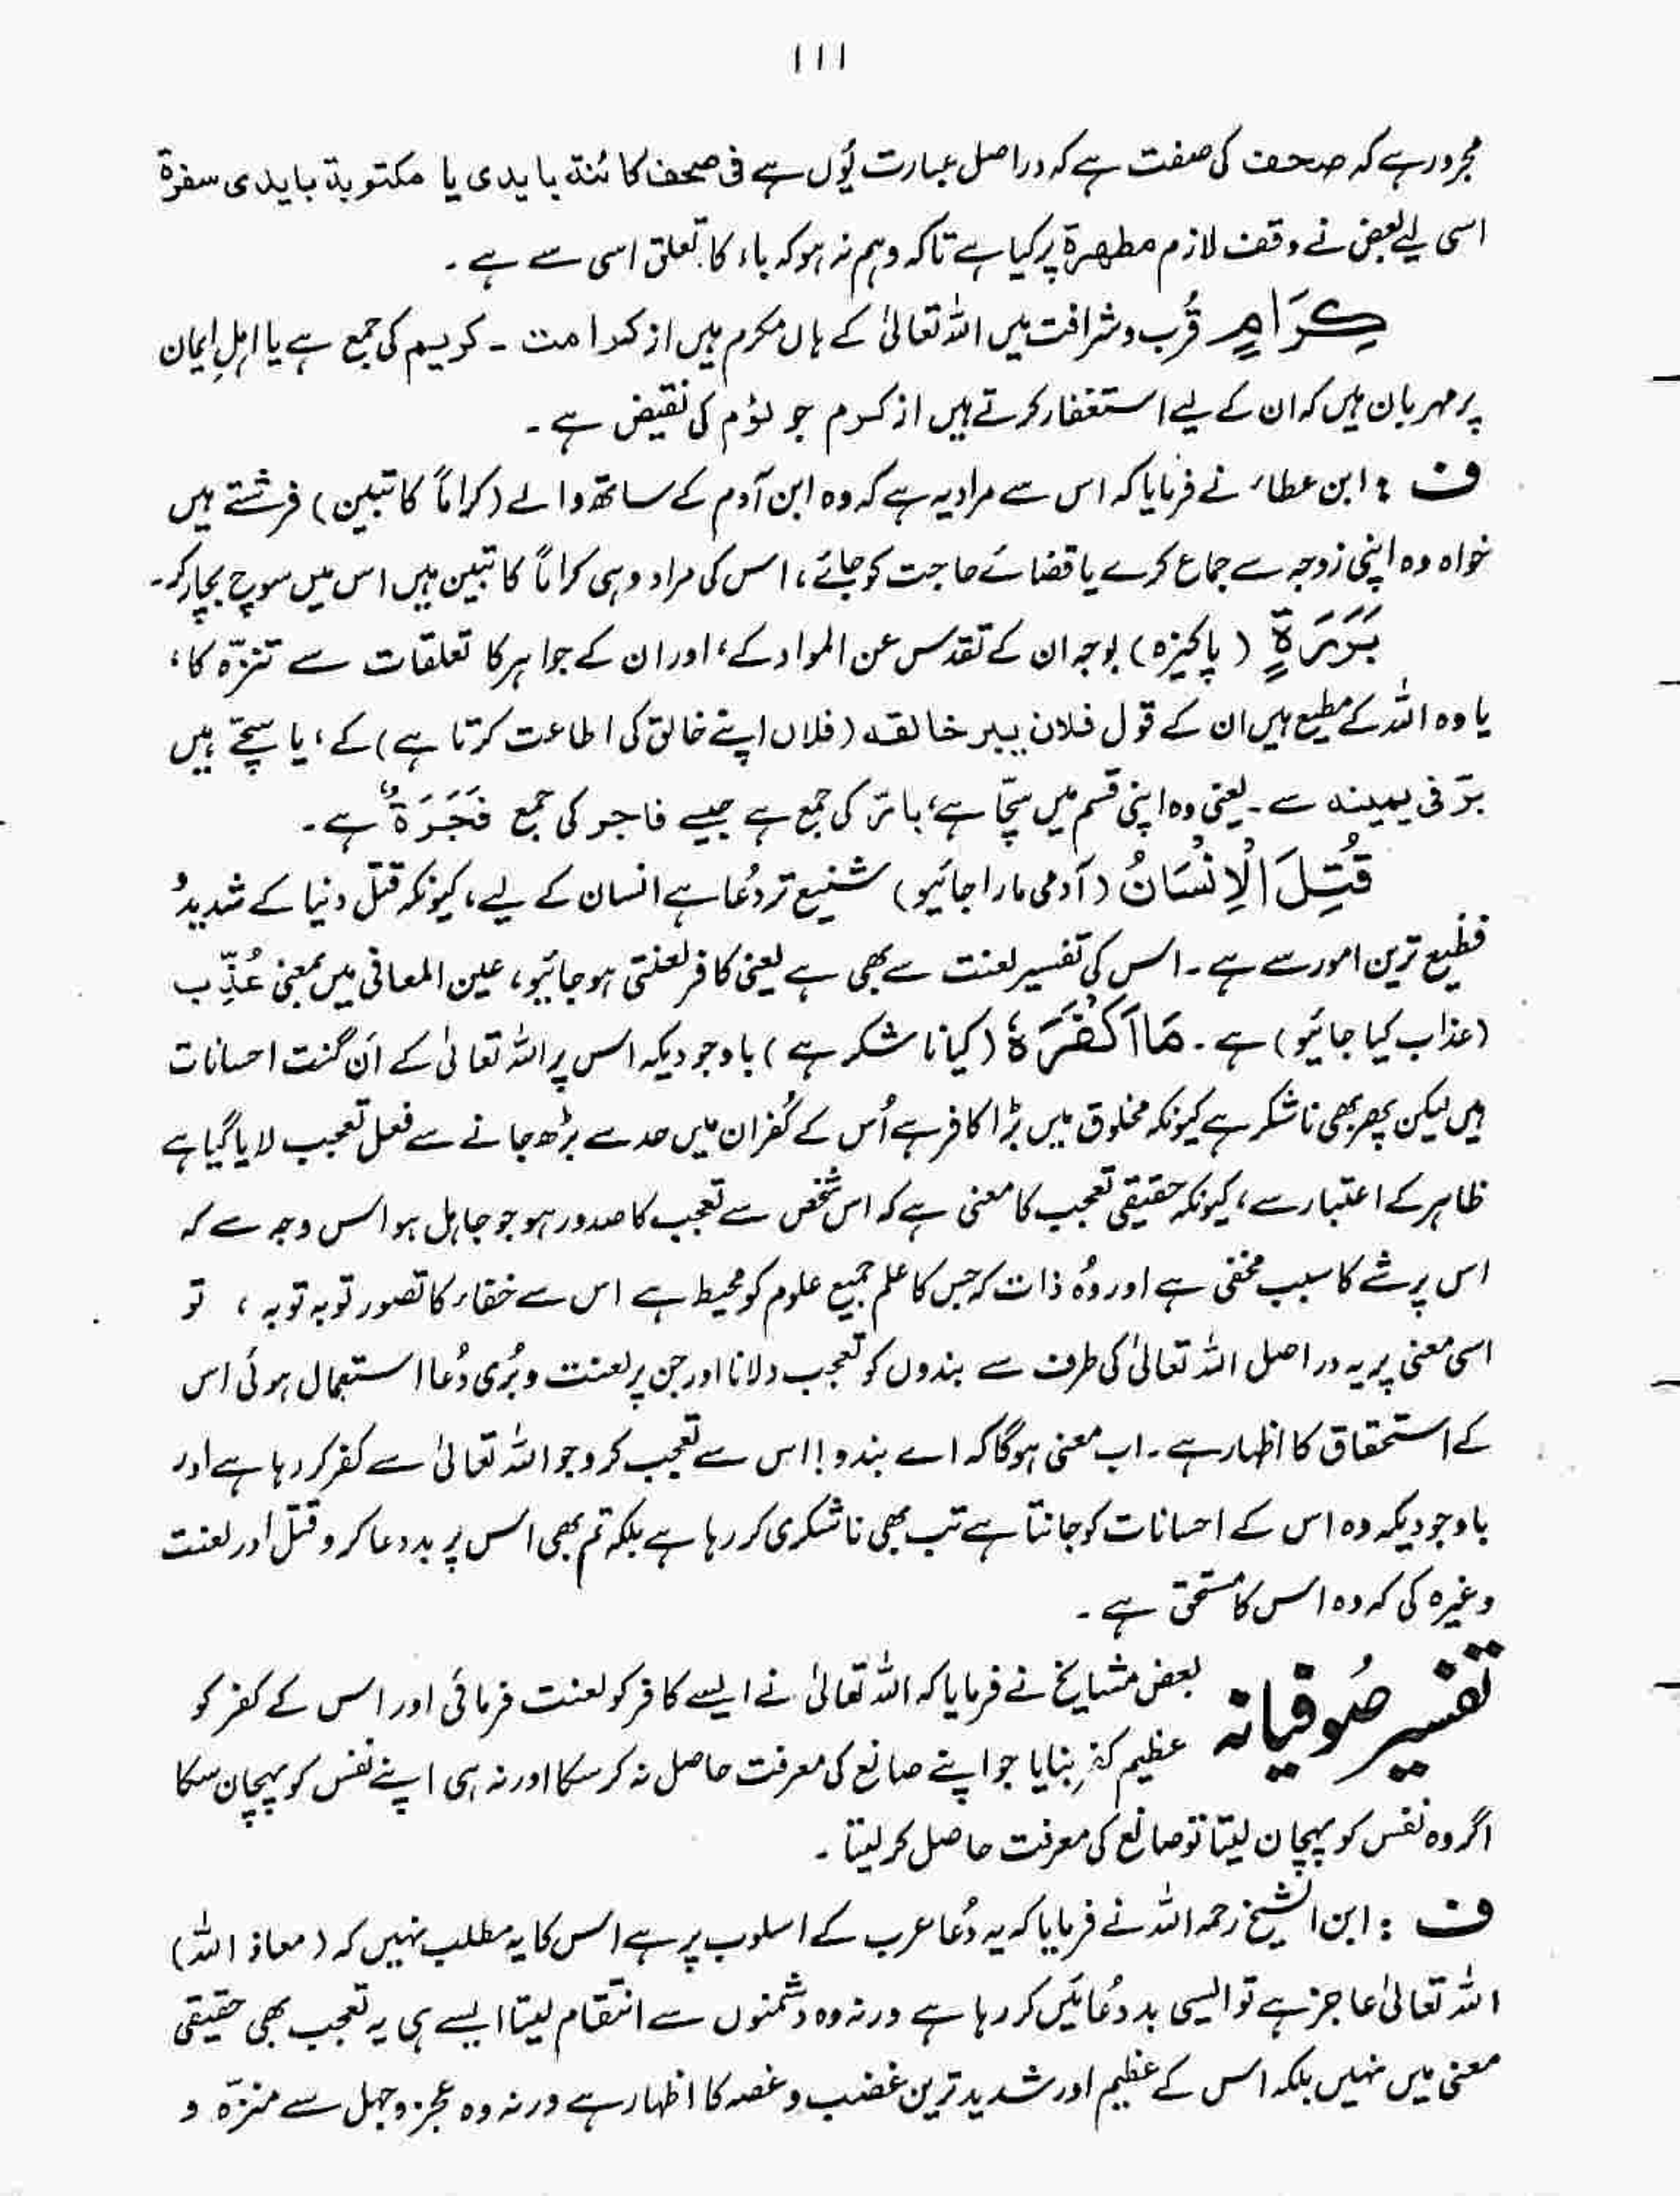 ۱۱۱
مجرور ہے کہ صحف کی صفت ہے کہ دراصل عبارت یُوں ہے فی صحف کائنۃ بایدی یا مکتوبۃ بایدی سفرۃ
اسی لیے بعض نے وقف لازم مطھرۃ پر کیا ہے تاکہ وہم نہ ہو کہ باء کا تعلق اسی سے ہے ۔
كِرَامٍ قُرب و شرافت میں اللہ تعالیٰ کے ہاں مکرم ہیں از کرامت ۔ کریم کی جمع ہے یا اہلِ ایمان
پر مہربان ہیں کہ ان کے لیے استغفار کرتے ہیں از کرم جو لؤم کی نقیض ہے ۔
ف : ابن عطاء نے فرمایا کہ اس سے مراد یہ ہے کہ وہ ابن آدم کے ساتھ والے (کراماً کاتبین) فرشتے ہیں
خواہ وہ اپنی زوجہ سے جماع کرے یا قضائے حاجت کو جائے ، اس کی مراد وہی کراماً کاتبین ہیں اس میں سوچ بچار کر ۔
بَرَرَةٍ ( پاکیزہ ) بوجہ ان کے تقدس عن المواد کے ، اور ان کے جواہر کا تعلقات سے تنزّہ کا ،
یا وہ اللہ کے مطیع ہیں ان کے قول فلان یبر خالقہ (فلاں اپنے خالق کی اطاعت کرتا ہے) کے ، یا سچّے ہیں
برّ فی یمینہ سے ۔ یعنی وہ اپنی قسم میں سچّا ہے ، بارّ کی جمع ہے جیسے فاجر کی جمع فَجَرَةٌ ہے ۔
قُتِلَ الْاِنْسَانُ (آدمی مارا جائیو) شنیع تر دُعا ہے انسان کے لیے ، کیونکہ قتل دنیا کے شدید و
فظیع ترین امور سے ہے ۔ اس کی تفسیر لعنت سے بھی ہے یعنی کافر لعنتی ہو جائیو ، عین المعانی میں بمعنی عُذِّب
(عذاب کیا جائیو) ہے ۔ مَا اَكْفَرَهٗ (کیا ناشکر ہے ) باوجودیکہ اس پر اللہ تعالیٰ کے اَن گنت احسانات
ہیں لیکن پھر بھی ناشکر ہے کیونکہ مخلوق میں بڑا کافر ہے اُس کے کُفران میں حد سے بڑھ جانے سے فعل تعجب لایا گیا ہے
ظاہر کے اعتبار سے ، کیونکہ حقیقی تعجب کا معنی ہے کہ اس شخص سے تعجب کا صدور ہو جو جاہل ہو اس وجہ سے کہ
اس پر شے کا سبب مخفی ہے اور وُہ ذات کہ جس کا علم جمیع علوم کو محیط ہے اس سے خفاء کا تصور توبہ توبہ ، تو
اسی معنی پر یہ دراصل اللہ تعالیٰ کی طرف سے بندوں کو تعجب دلانا اور جن پر لعنت و بُری دُعا استعمال ہوئی اس
کے استحقاق کا اظہار ہے ۔ اب معنی ہوگا کہ اے بندو ! اس سے تعجب کرو جو اللہ تعالیٰ سے کفر کر رہا ہے اور
باوجودیکہ وہ اس کے احسانات کو جانتا ہے تب بھی ناشکری کر رہا ہے بلکہ تم بھی اس پر بددعا کرو قتل اور لعنت
وغیرہ کی کہ وہ اس کا مستحق ہے ۔
تفسیر صُوفیانہ بعض مشایخ نے فرمایا کہ اللہ تعالیٰ نے ایسے کافر کو لعنت فرمائی اور اس کے کفر کو
عظیم کفر بنایا جو اپنے صانع کی معرفت حاصل نہ کر سکا اور نہ ہی اپنے نفس کو پہچان سکا
اگر وہ نفس کو پہچان لیتا تو صانع کی معرفت حاصل کر لیتا ۔
ف : ابن الشیخ رحمہ اللہ نے فرمایا کہ یہ دُعا عرب کے اسلوب پر ہے اس کا یہ مطلب نہیں کہ (معاذ اللہ)
اللہ تعالیٰ عاجز ہے تو ایسی بددُعائیں کر رہا ہے ورنہ وہ دشمنوں سے انتقام لیتا ایسے ہی یہ تعجب بھی حقیقی
معنی میں نہیں بلکہ اس کے عظیم اور شدید ترین غضب و غصہ کا اظہار ہے ورنہ وہ عجز و جہل سے منزّہ و